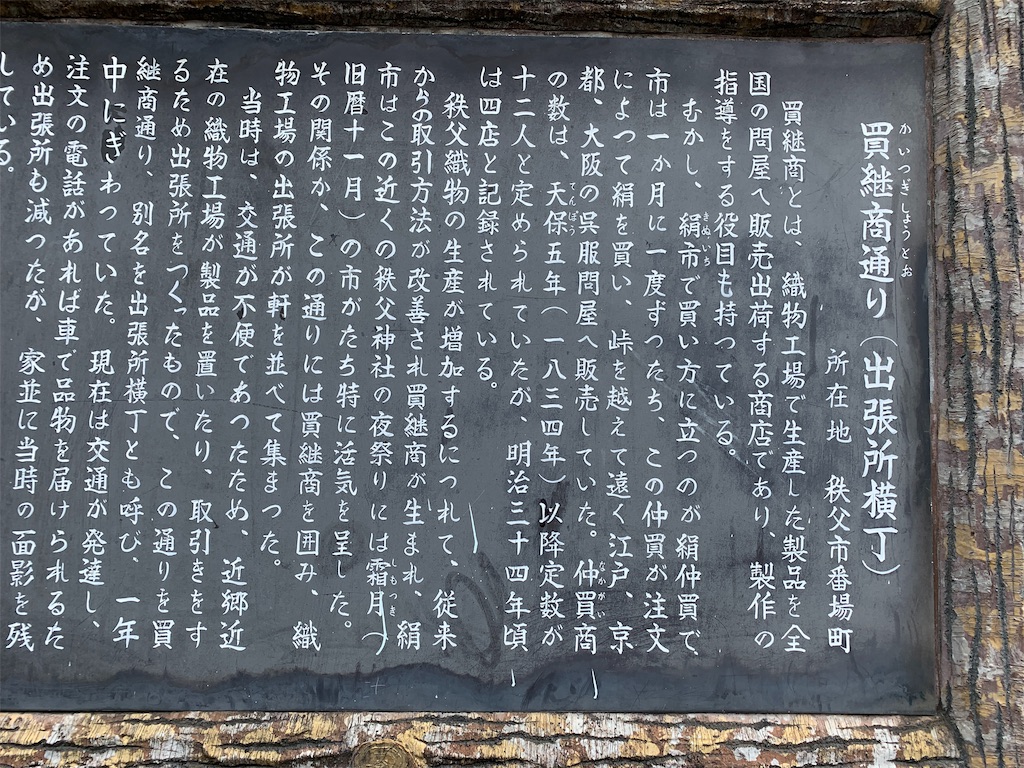 買継商通り（出張所横丁）
かいつぎしょうとお
所在地　秩父市番場町
買継商とは、織物工場で生産した製品を全
国の問屋へ販売出荷する商店であり、製作の
指導をする役目も持っている。
むかし、絹市で買い方に立つのが絹仲買で、
きぬいち
市は一か月に一度ずつたち、この仲買が注文
によって絹を買い、峠を越えて遠く江戸、京
都、大阪の呉服問屋へ販売していた。仲買商
なかがい
の数は、天保五年（一八三四年）以降定数が
てんぽう
十二人と定められていたが、明治三十四年頃
は四店と記録されている。
秩父織物の生産が増加するにつれて、従来
からの取引方法が改善され買継商が生まれ、絹
市はこの近くの秩父神社の夜祭りには霜月（
しもつき
旧暦十一月）の市がたち特に活気を呈した。
その関係か、この通りには買継商を囲み、織
物工場の出張所が軒を並べて集まつた。
当時は、交通が不便であつたため、近郷近
在の織物工場が製品を置いたり、取引きをす
るため出張所をつくったもので、この通りを買
継商通り、別名を出張所横丁とも呼び、一年
中にぎわっていた。現在は交通が発達し、
注文の電話があれば車で品物を届けられるた
め出張所も減つたが、家並に当時の面影を残
している。